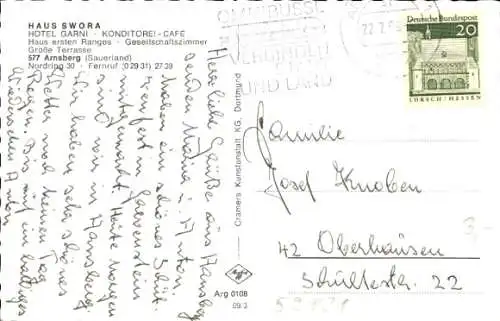 HAUS SWORA
HOTEL GARNI - KONDITOREI - CAFE
Haus ersten Ranges - Gesellschaftszimmer
Große Terrasse
577 Arnsberg (Sauerland)
Nordring 30 - Fernruf (02931) 27 39
OMNIBUSSE
VERBINDEN
UND LAND
Deutsche Bundespost
20
LORSCH / HESSEN
Herzliche Grüße aus Arnsberg
senden Maria u. Anton
haben ein schönes
sind wir in Arnsberg.
Wir haben sehr schönes
Wetter noch keinen Tag
Regen. Bis auf ein baldiges
Wiedersehen Anton
Cramers Kunstanstalt KG, Dortmund
Agfa
Arg 0108
09 3
Familie
Josef Knoben
42 Oberhausen
Schultestr. 22
3,-